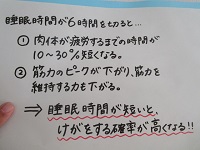 睡眠時間が6時間を切ると…
① 肉体が疲労するまでの時間が
10〜30%短くなる。
② 筋力のピークが下がり、筋力を
維持する力も下がる。
⇒ 睡眠時間が短いと、
けがをする確率が高くなる!!